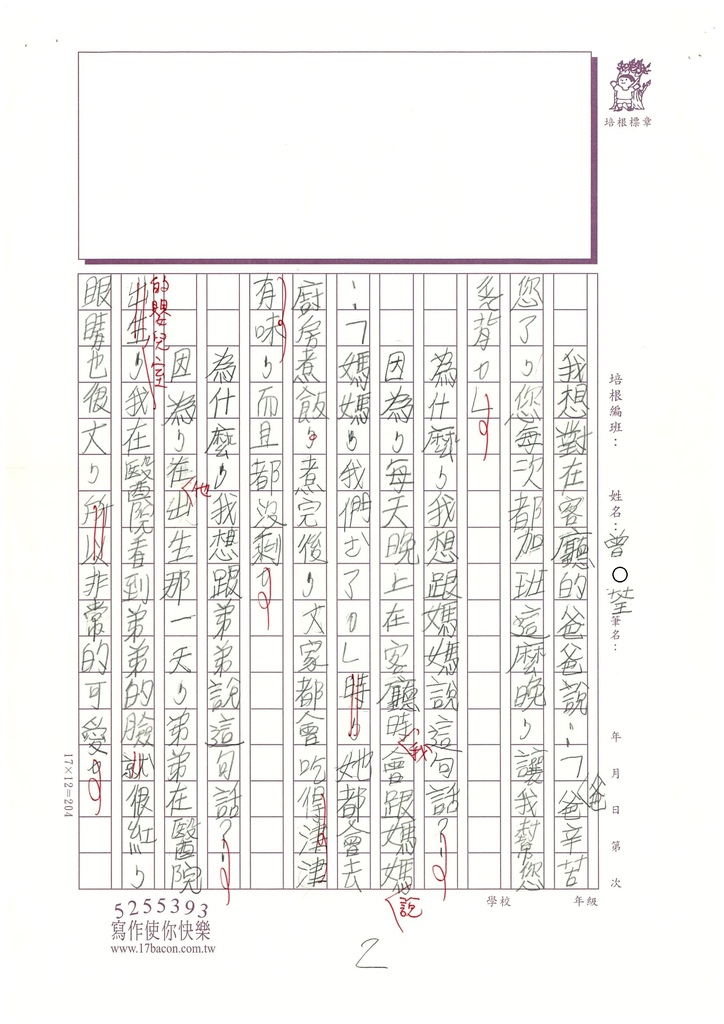 培根標章
培根編班：
姓名：曾○埜
筆名：
年 月 日 第 次
學校 年級
我想對在客廳的爸爸說：「爸辛苦
爸
您了，您每次都加班這麼晚，讓我幫您
背。」
為什麼，我想跟媽媽說這句話？
因為，每天晚上在客廳時會跟媽媽
我
說
：「媽媽，我們七了。」時，她都會去
廚房煮飯，煮完後，大家都會吃得津津
有味，而且都沒剩。
為什麼，我想跟弟弟說這句話？
因為，在出生那一天，弟弟在醫院
他
的嬰兒室
出生，我在醫院看到弟弟的臉就很紅，
眼睛也很大，所以非常的可愛。
17×12=204
5255393
寫作使你快樂
www.17bacon.com.tw
2